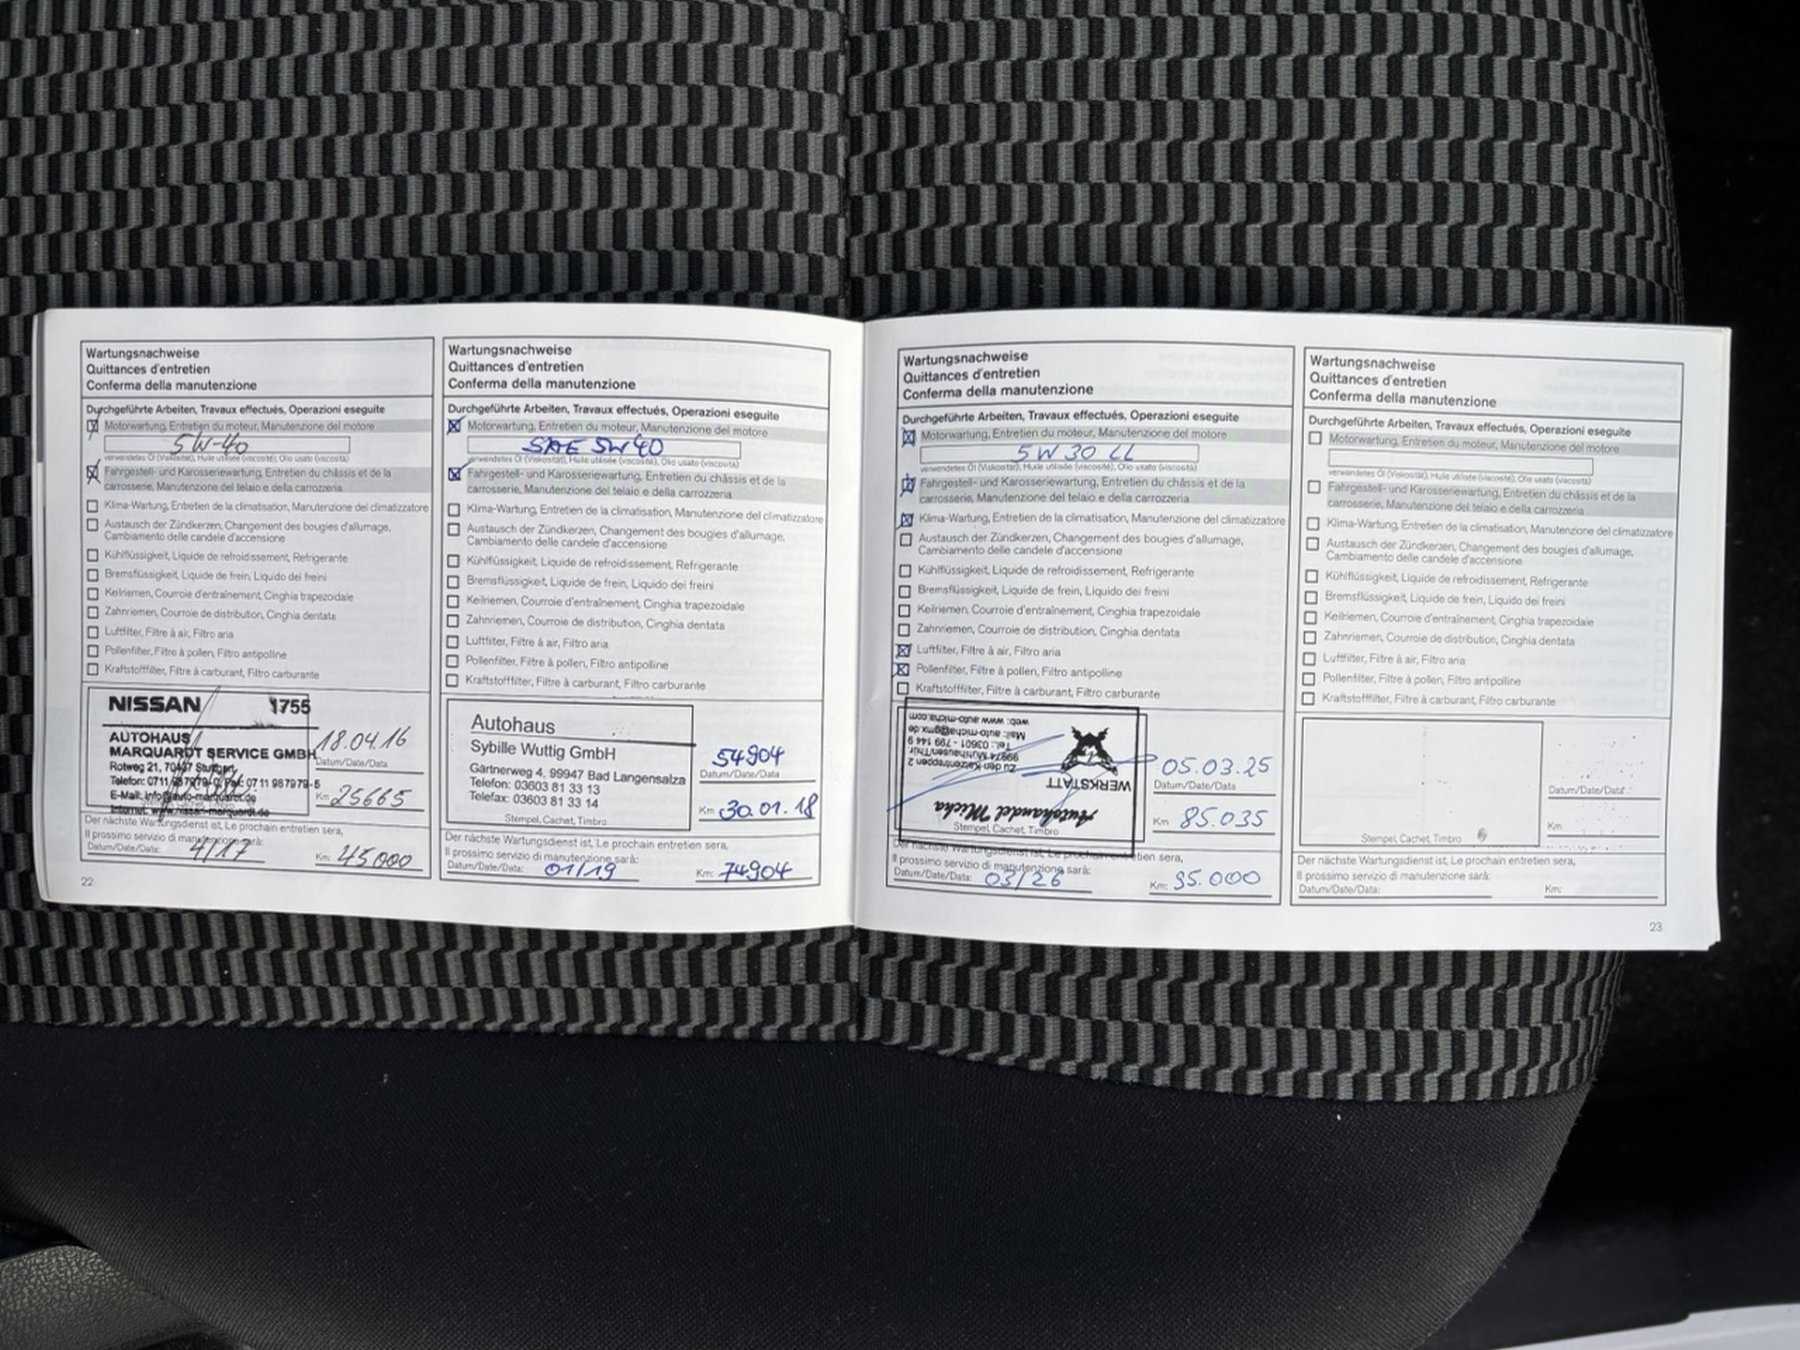 Wartungsnachweise
Quittances d'entretien
Conferma della manutenzione
Durchgeführte Arbeiten, Travaux effectués, Operazioni eseguite
Motorwartung, Entretien du moteur, Manutenzione del motore
5W-40
verwendetes Öl (Viskosität), Huile utilisée (viscosité), Olio usato (viscosità)
Fahrgestell- und Karosseriewartung, Entretien du châssis et de la
carrosserie, Manutenzione del telaio e della carrozzeria
Klima-Wartung, Entretien de la climatisation, Manutenzione del climatizzatore
Austausch der Zündkerzen, Changement des bougies d'allumage,
Cambiamento delle candele d'accensione
Kühlflüssigkeit, Liquide de refroidissement, Refrigerante
Bremsflüssigkeit, Liquide de frein, Liquido dei freini
Keilriemen, Courroie d'entraînement, Cinghia trapezoidale
Zahnriemen, Courroie de distribution, Cinghia dentata
Luftfilter, Filtre à air, Filtro aria
Pollenfilter, Filtre à pollen, Filtro antipolline
Kraftstofffilter, Filtre à carburant, Filtro carburante
NISSAN 1755
AUTOHAUS
MARQUARDT SERVICE GMBH
Rotweg 21, 70437 Stuttgart
Telefon: 0711 987979-0, Fax: 0711 987979-5
E-Mail: info@auto-marquardt.de
Internet: www.nissan-marquardt.de
18.04.16
Datum/Date/Data
Km 25665
Der nächste Wartungsdienst ist, Le prochain entretien sera,
Il prossimo servizio di manutenzione sarà:
Datum/Date/Data: 4/17 Km: 45000
22
Wartungsnachweise
Quittances d'entretien
Conferma della manutenzione
Durchgeführte Arbeiten, Travaux effectués, Operazioni eseguite
Motorwartung, Entretien du moteur, Manutenzione del motore
SAE 5W40
verwendetes Öl (Viskosität), Huile utilisée (viscosité), Olio usato (viscosità)
Fahrgestell- und Karosseriewartung, Entretien du châssis et de la
carrosserie, Manutenzione del telaio e della carrozzeria
Klima-Wartung, Entretien de la climatisation, Manutenzione del climatizzatore
Austausch der Zündkerzen, Changement des bougies d'allumage,
Cambiamento delle candele d'accensione
Kühlflüssigkeit, Liquide de refroidissement, Refrigerante
Bremsflüssigkeit, Liquide de frein, Liquido dei freini
Keilriemen, Courroie d'entraînement, Cinghia trapezoidale
Zahnriemen, Courroie de distribution, Cinghia dentata
Luftfilter, Filtre à air, Filtro aria
Pollenfilter, Filtre à pollen, Filtro antipolline
Kraftstofffilter, Filtre à carburant, Filtro carburante
Autohaus
Sybille Wuttig GmbH
Gärtnerweg 4, 99947 Bad Langensalza
Telefon: 03603 81 33 13
Telefax: 03603 81 33 14
Stempel, Cachet, Timbro
54904
Datum/Date/Data
Km 30.01.18
Der nächste Wartungsdienst ist, Le prochain entretien sera,
Il prossimo servizio di manutenzione sarà:
Datum/Date/Data: 01/19 Km: 74904
Wartungsnachweise
Quittances d'entretien
Conferma della manutenzione
Durchgeführte Arbeiten, Travaux effectués, Operazioni eseguite
Motorwartung, Entretien du moteur, Manutenzione del motore
5W30 LL
verwendetes Öl (Viskosität), Huile utilisée (viscosité), Olio usato (viscosità)
Fahrgestell- und Karosseriewartung, Entretien du châssis et de la
carrosserie, Manutenzione del telaio e della carrozzeria
Klima-Wartung, Entretien de la climatisation, Manutenzione del climatizzatore
Austausch der Zündkerzen, Changement des bougies d'allumage,
Cambiamento delle candele d'accensione
Kühlflüssigkeit, Liquide de refroidissement, Refrigerante
Bremsflüssigkeit, Liquide de frein, Liquido dei freini
Keilriemen, Courroie d'entraînement, Cinghia trapezoidale
Zahnriemen, Courroie de distribution, Cinghia dentata
Luftfilter, Filtre à air, Filtro aria
Pollenfilter, Filtre à pollen, Filtro antipolline
Kraftstofffilter, Filtre à carburant, Filtro carburante
Autohandel Micha
WERKSTATT
Zu den Katzentreppen 2
99974 Mühlhausen/Thür
Tel.: 03601 - 799 144 9
Mail: auto-micha@gmx.de
web: www auto-micha.com
Stempel, Cachet, Timbro
05.03.25
Datum/Date/Data
Km 85.035
Der nächste Wartungsdienst ist, Le prochain entretien sera,
Il prossimo servizio di manutenzione sarà:
Datum/Date/Data: 03/26 Km: 95.000
Wartungsnachweise
Quittances d'entretien
Conferma della manutenzione
Durchgeführte Arbeiten, Travaux effectués, Operazioni eseguite
Motorwartung, Entretien du moteur, Manutenzione del motore
verwendetes Öl (Viskosität), Huile utilisée (viscosité), Olio usato (viscosità)
Fahrgestell- und Karosseriewartung, Entretien du châssis et de la
carrosserie, Manutenzione del telaio e della carrozzeria
Klima-Wartung, Entretien de la climatisation, Manutenzione del climatizzatore
Austausch der Zündkerzen, Changement des bougies d'allumage,
Cambiamento delle candele d'accensione
Kühlflüssigkeit, Liquide de refroidissement, Refrigerante
Bremsflüssigkeit, Liquide de frein, Liquido dei freini
Keilriemen, Courroie d'entraînement, Cinghia trapezoidale
Zahnriemen, Courroie de distribution, Cinghia dentata
Luftfilter, Filtre à air, Filtro aria
Pollenfilter, Filtre à pollen, Filtro antipolline
Kraftstofffilter, Filtre à carburant, Filtro carburante
Stempel, Cachet, Timbro
Datum/Date/Data
Km
Der nächste Wartungsdienst ist, Le prochain entretien sera,
Il prossimo servizio di manutenzione sarà:
Datum/Date/Data: Km:
23